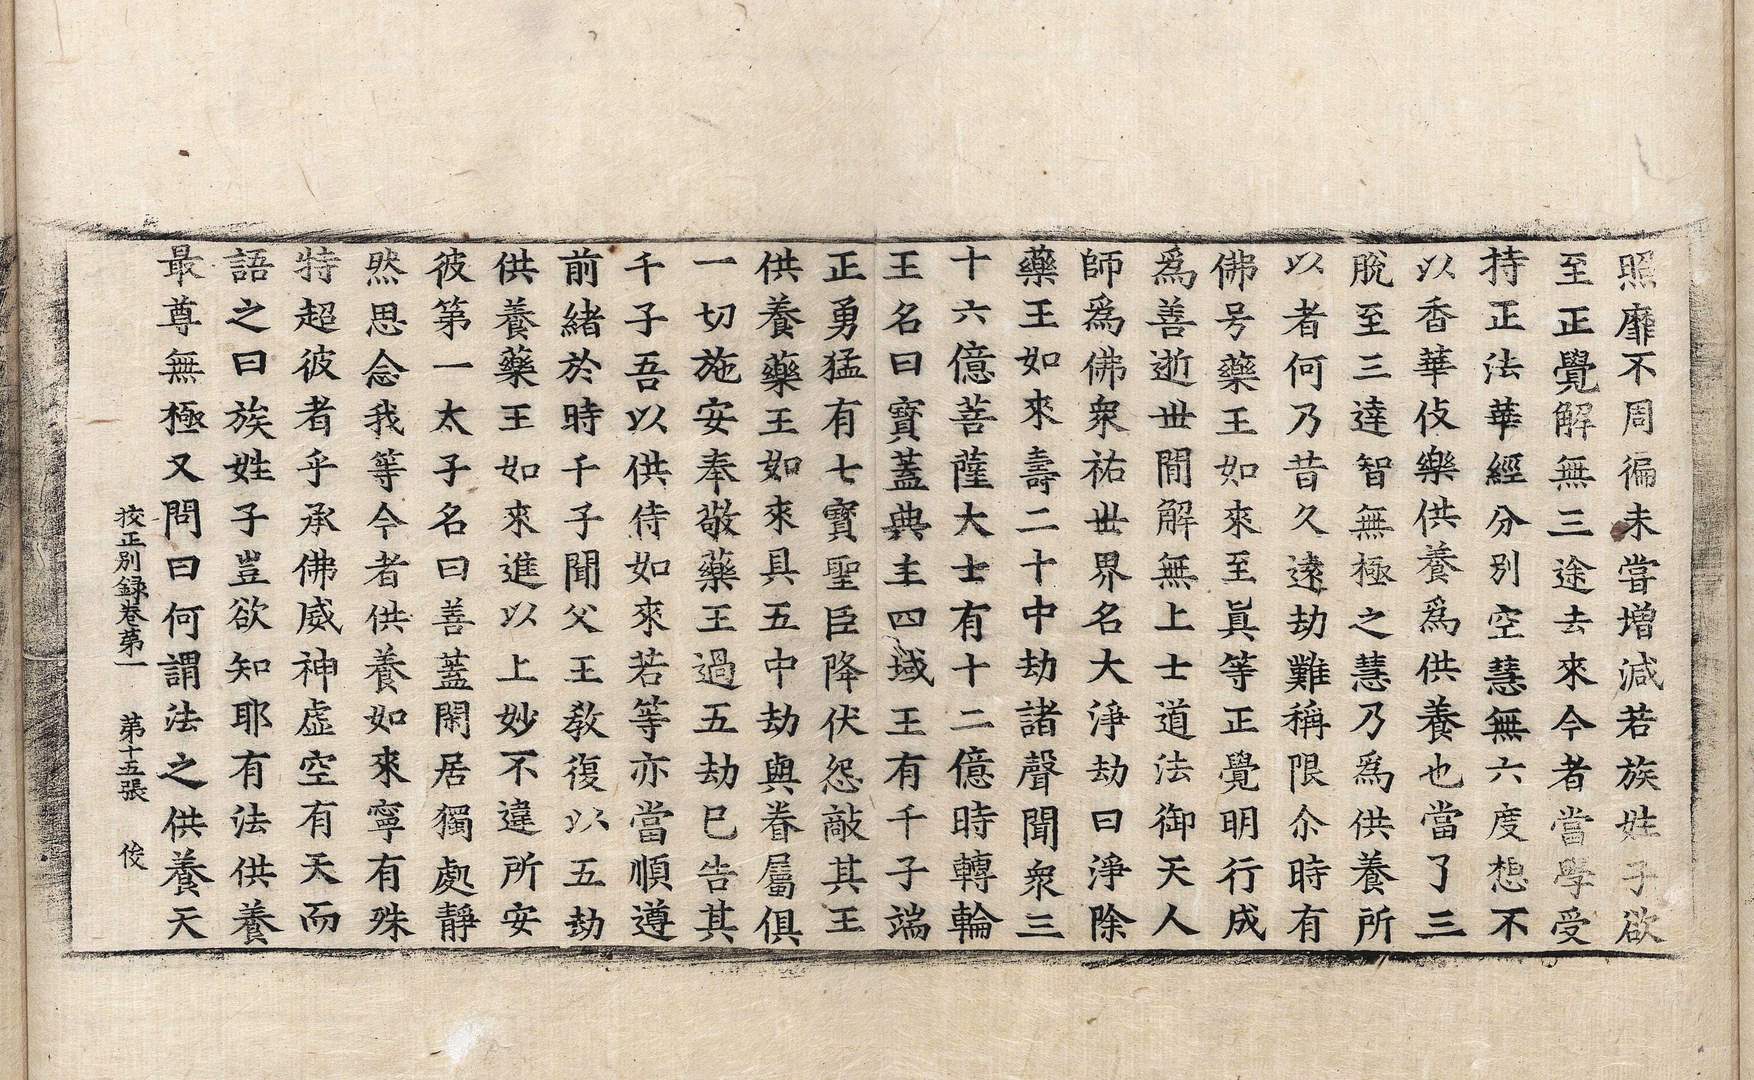 照靡不周徧未甞增減若族姓子欲
至正覺解無三途去來今者當學受
持正法華經分別空慧無六度想不
以香華伎樂供養爲供養也當了三
脫至三達智無極之慧乃爲供養所
以者何乃昔久遠劫難稱限尒時有
佛号藥王如來至眞等正覺明行成
爲善逝世閒解無上士道法御天人
師爲佛衆祐世界名大淨劫曰淨除
藥王如來壽二十中劫諸聲聞衆三
十六億菩薩大士有十二億時轉輪
王名曰寶蓋典主四域王有千子端
正勇猛有七寶聖臣降伏怨敵其王
供養藥王如來具五中劫與眷屬俱
一切施安奉敬藥王過五劫已告其
千子吾以供侍如來若等亦當順遵
前緖於時千子聞父王教復以五劫
供養藥王如來進以上妙不違所安
彼第一太子名曰善蓋閑居獨處靜
然思念我等今者供養如來寧有殊
特超彼者乎承佛威神虛空有天而
語之曰族姓子豈欲知耶有法供養
最尊無極又問曰何謂法之供養天
挍正別錄卷苐一 苐十五張 俊